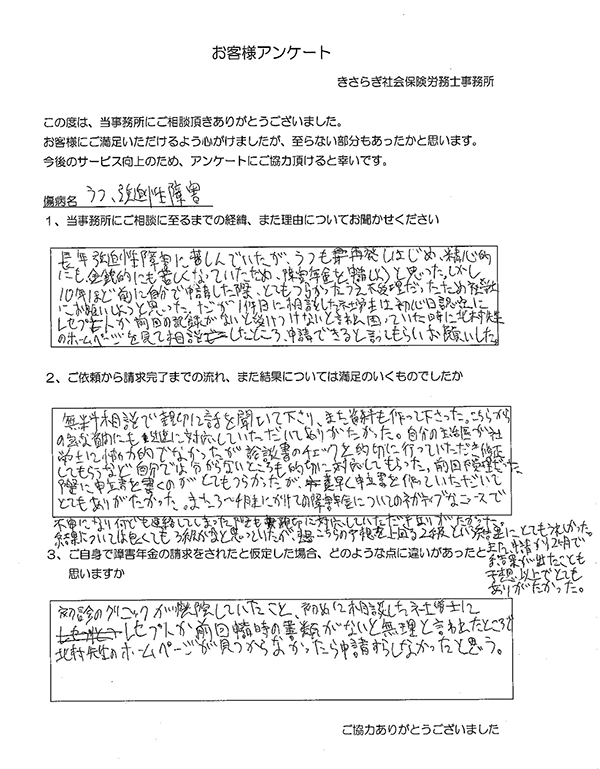 お客様アンケート
きさらぎ社会保険労務士事務所
この度は、当事務所にご相談頂きありがとうございました。
お客様にご満足いただけるよう心がけましたが、至らない部分もあったかと思います。
今後のサービス向上のため、アンケートにご協力頂けると幸いです。
傷病名 うつ、強迫性障害
1、当事務所にご相談に至るまでの経緯、また理由についてお聞かせください
長年強迫性障害に苦しんでいたが、うつも再発しはじめ、精神的
にも金銭的にも苦しくなっていたため、障害年金を申請しようと思った。しかし
10年ほど前に自分で申請した際、とてもつらかったうえ不受理だったため社労士
にお願いしようと思った。だが1件目に相談した社労士は初心日認定に
レセプトか前回の記録がないと受けつけないと言われ困っていた時に北村先生
のホームページを見て相談したところ、申請できると言ってもらいお願いした。
2、ご依頼から請求完了までの流れ、また結果については満足のいくものでしたか
無料相談で親切に話を聞いて下さり、また資料も作って下さった。こちらから
の急な質問にも迅速に対応していただいてありがたかった。自分の主治医が社
労士に協力的でなかったが診談書のチェックを的切に行っていただき修正
してもらうなど自分では分からないところも的切に対応してもらった。前回不受理だった
際に申立書を書くのがとてもつらかったが、素早く申立書を作っていただいて
とてもありがたかった。また、にかけての障害年金についてのネガティブなニュースで
不安になり何度も連絡してしまったがそれも親切に対応していただきありがたかった。
結果については良くても3級かなと思っていたが、こちらの予想を上回る2級という決定にとてもうれしかった。
また、申請から2カ月で
結果が出たことも
予想以上でとても
ありがたかった。
3、ご自身で障害年金の請求をされたと仮定した場合、どのような点に違いがあったと
思いますか
初診のクリニックが廃院していたこと、初めに相談した社労士に
レセプトか前回申請時の書類がないと無理と言われたところで
北村先生のホームページが見つからなかったら申請すらしなかったと思う。
ご協力ありがとうございました